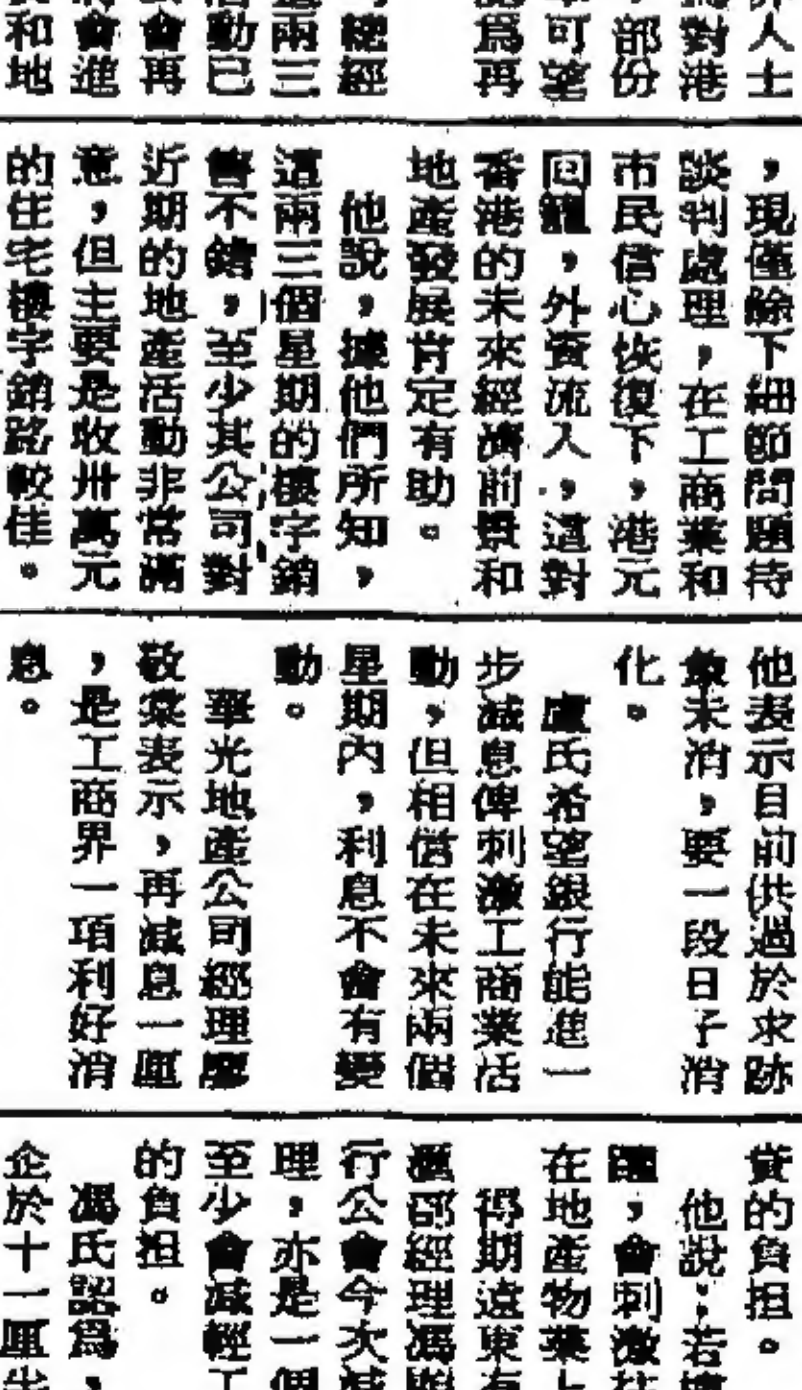 界人士
對港
，部份
可望
爲再
總經
兩三
動已
會再
會進
和地
，現僅餘下細節問題待
談判處理，在工商業和
市民信心恢復下，港元
回籠，外資流入，這對
香港的未來經濟前景和
地產發展肯定有助。
他說，據他們所知，
這兩三個星期的樓宇銷
售不錯，至少其公司對
近期的地產活動非常滿
意，但主要是收卅萬元
的住宅樓宇銷路較佳。
他表示目前供過於求跡
象未消，要一段日子消
化。
盧氏希望銀行能進一
步減息俾刺激工商業活
動，但相信在未來兩個
星期內，利息不會有變
動。
華光地產公司經理廖
敬棠表示，再減息一厘
，是工商界一項利好消
息。
貲的負担。
他說，若
，會刺激
在地產物業上
得期遠東有
滙部經理馮
行公會今次減
理，亦是一個
至少會減輕工
的負担。
馮氏認爲，
企於十一厘